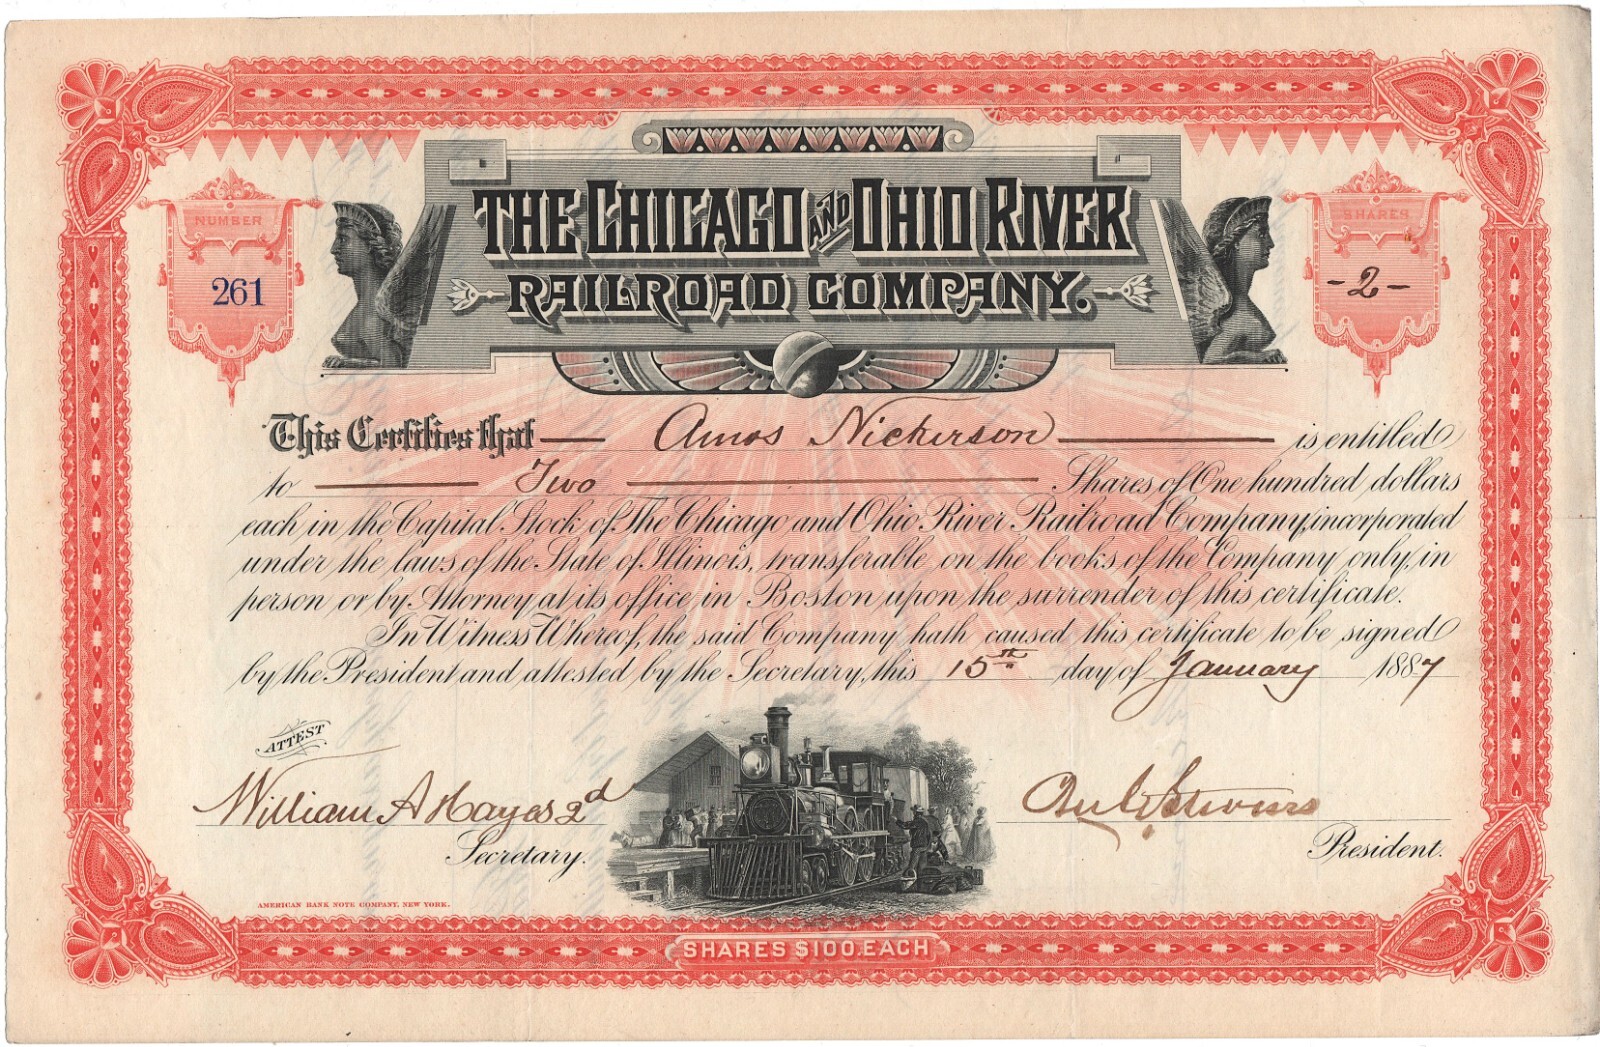 THE CHICAGO AND OHIO RIVER
RAILROAD COMPANY.
NUMBER
261
SHARES
-2-
This Certifies that Amos Nickerson is entitled
to Two Shares of One hundred dollars
each in the Capital Stock of The Chicago and Ohio River Railroad Company, incorporated
under the laws of the State of Illinois, transferable on the books of the Company only, in
person or by Attorney at its office in Boston upon the surrender of this certificate.
In Witness Whereof, the said Company hath caused this certificate to be signed
by the President and attested by the Secretary, this 15th day of January 1887
ATTEST
William A Hayes 2d
Secretary.
President.
AMERICAN BANK NOTE COMPANY, NEW YORK.
SHARES $100. EACH